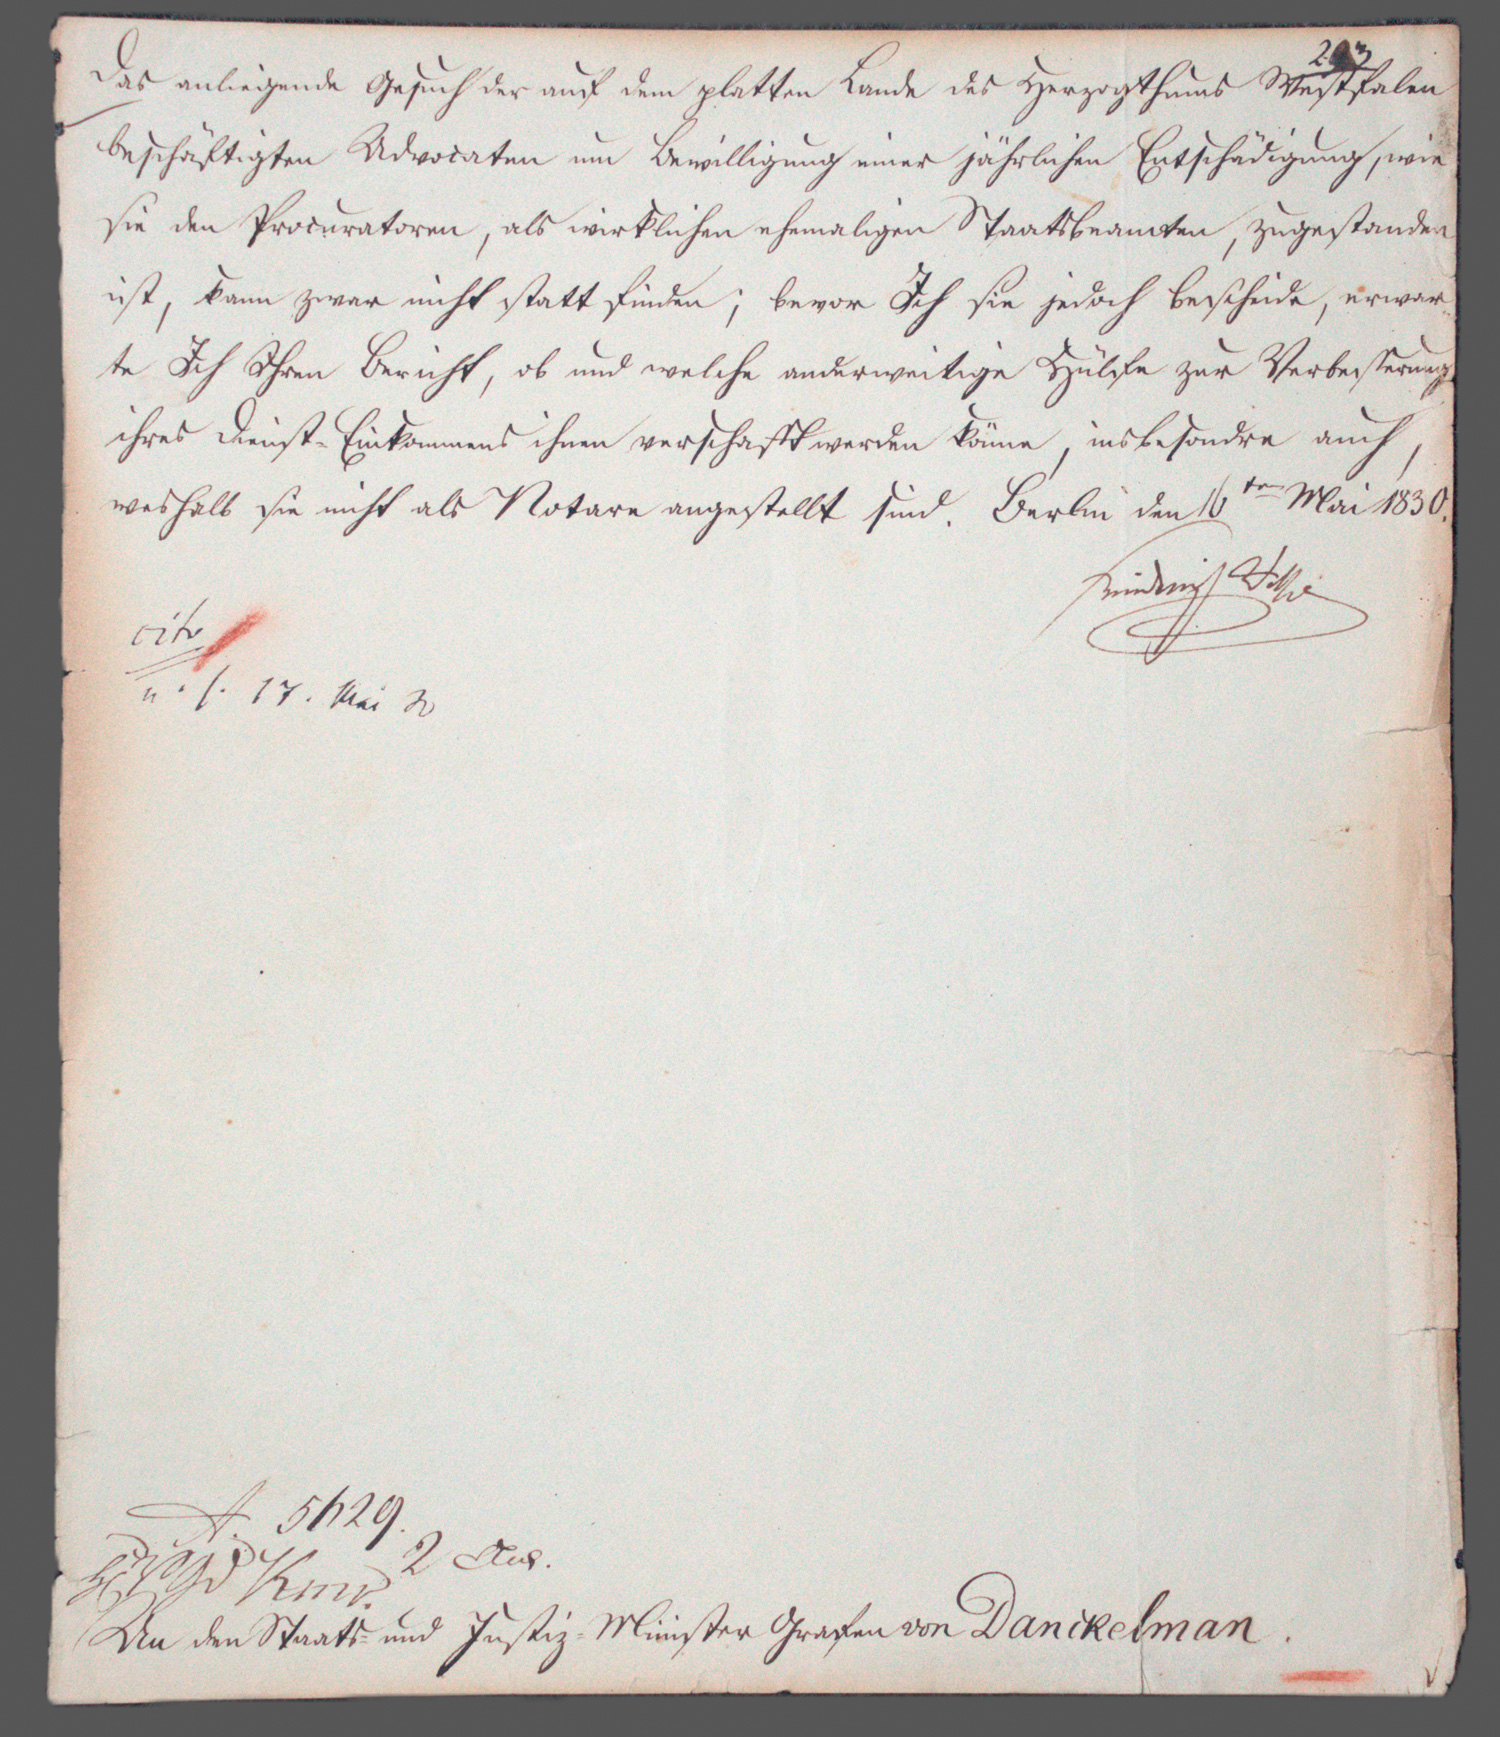 Das anliegende Gesuch der auf dem platten Lande des Herzogthums Westfalen
beschäftigten Advocaten um Bewilligung einer jährlichen Entschädigung, wie
sie den Procuratoren, als wirklichen ehemaligen Staatsbeamten, zugestanden
ist, kann zwar nicht statt finden; bevor Ich sie jedoch bescheide, erwar
te Ich Ihren Bericht, ob und welche anderweitige Hülfe zur Verbesserung
ihres Dienst-Einkommens ihnen verschafft werden könne, insbesondre auch,
weshalb sie nicht als Notare angestellt sind. Berlin den 16ten Mai 1830.
Friedrich Wilhelm
cito
17. Mai 30
A.
2
An den Staats- und Justiz-Minister Grafen von Danckelman.